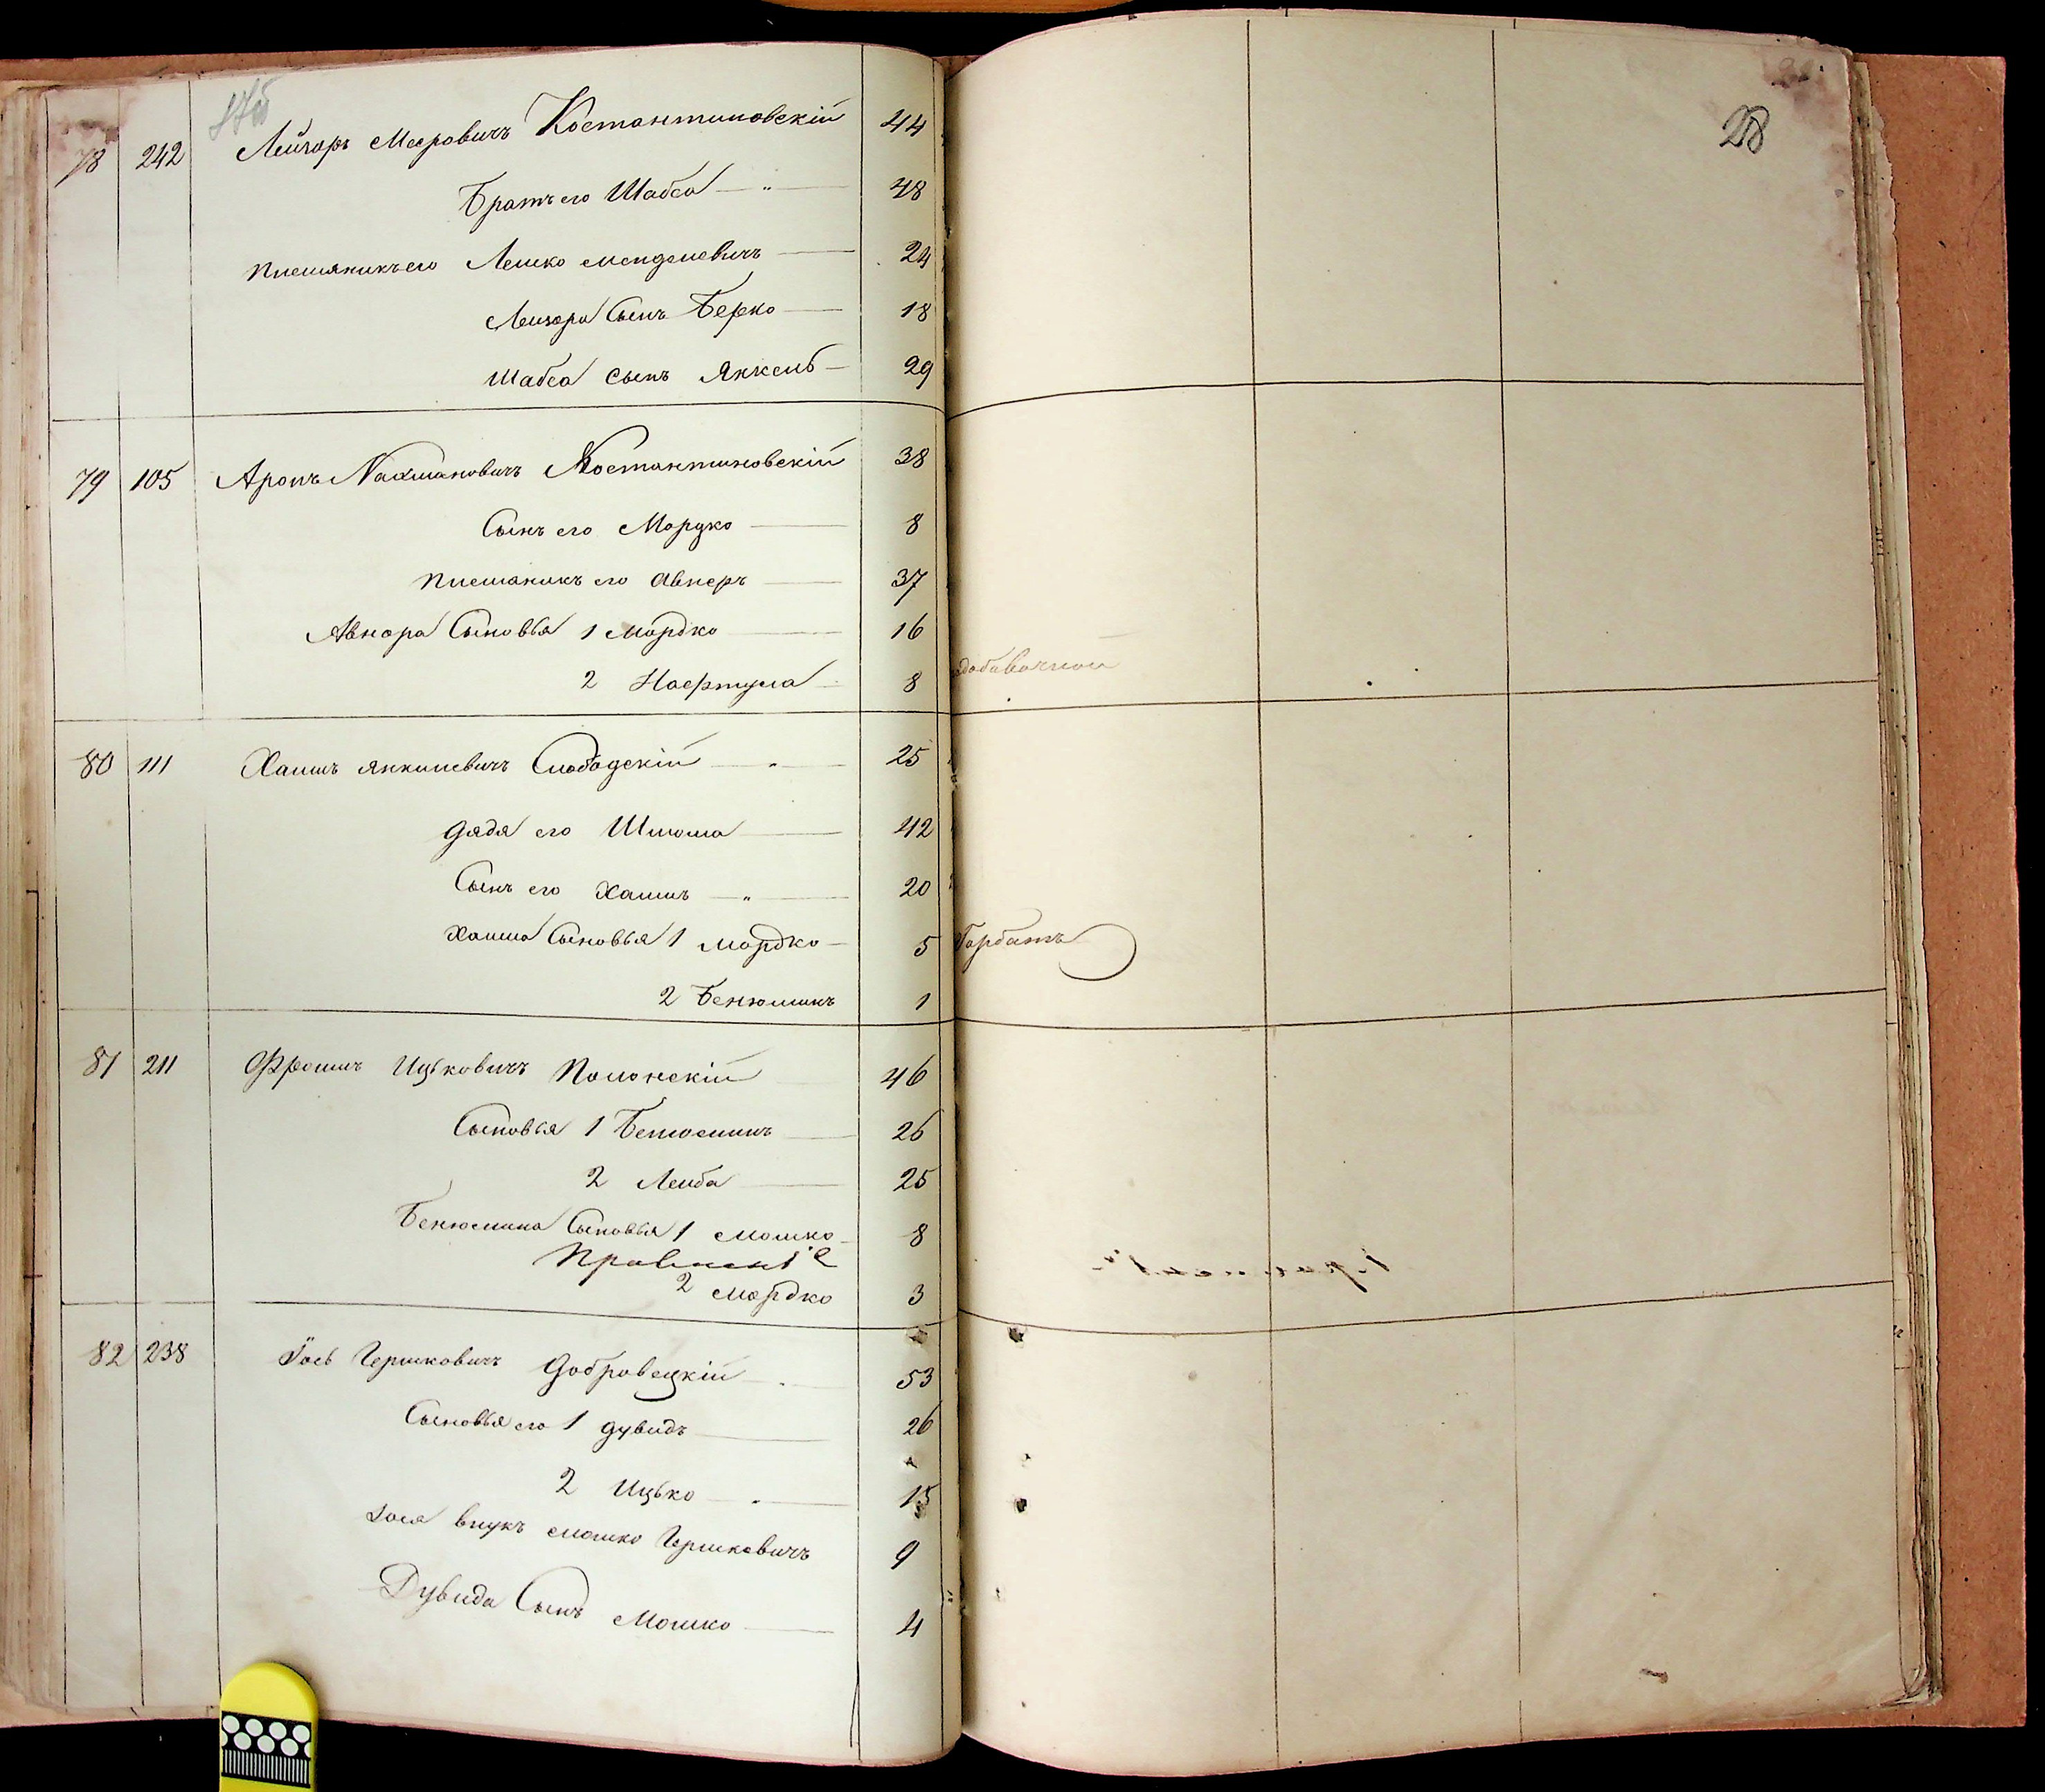 78 242 Лейзоръ Мееровичъ Костантиновскій 44
Братъ его Шабса — „ — 48
племяникъ его Лейко Менделевичъ — 24
Лейзора Сынъ Берко — 18
Шабса сынъ Янкель — 29
79 105 Аронъ Нахмановичъ Костантиновскій 38
Сынъ его Мордко — 8
племяникъ его Авнеръ — 37
Авнера Сыновья 1 Мордко — 16
2 Нафтула — 8
добавочной
80 111 Хаимъ Янкилевичъ Слободскій — „ — 25
дядя его Шлиома — 42
Сынъ его Хаимъ — „ — 20
Хаима Сыновья 1 Мордко — 5 Горбатъ
2 Бенюминъ 1
81 211 Фроимъ Ицковичъ Полонскій 46
Сыновья 1 Бенюминъ — 26
2 Лейба — 25
Бенюмина Сыновья 1 Мошко — 8
2 Мордко 3
82 238 Іось Гершковичъ Добровецкій — 53
Сыновья его 1 Дувидъ — 26
2 Ицько — „ — 15
Іося внукъ Мошко Гершковичъ 9
Дувида Сынъ Мошко — 4
28